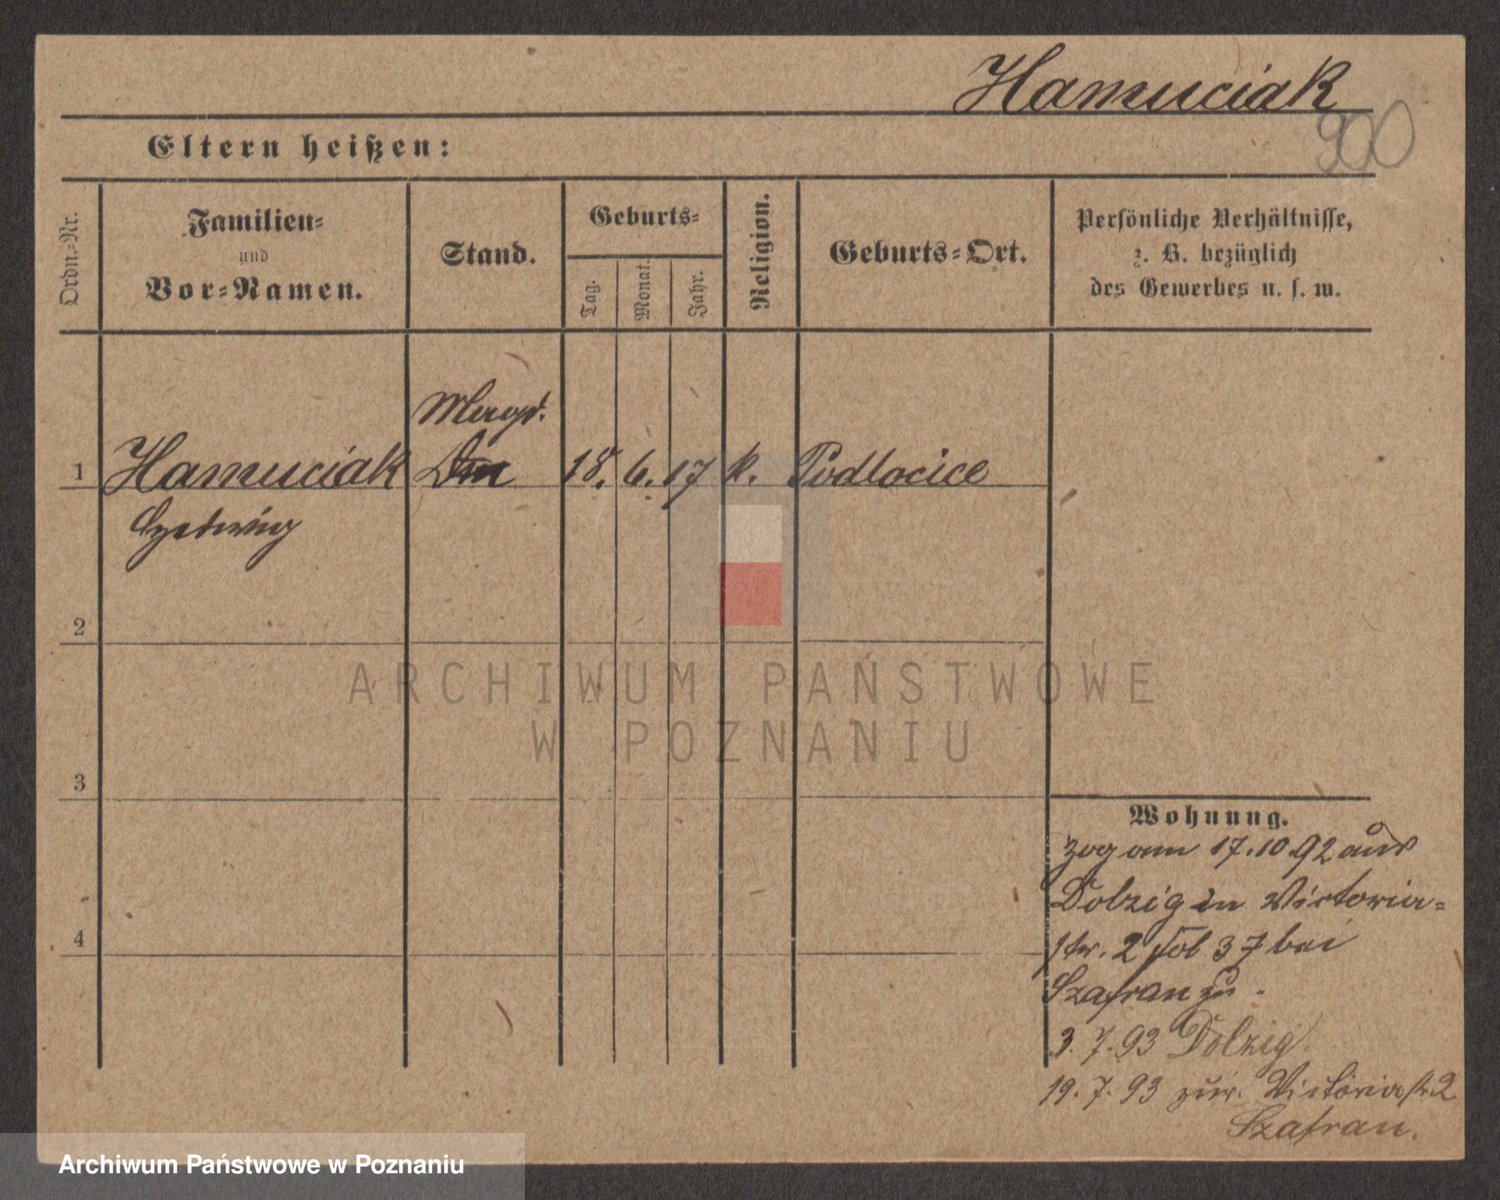 Hamuciak
300
Eltern heißen:
Ordn.-Nr.
Familien-
und
Vor-Namen.
Stand.
Geburts-
Tag.
Monat.
Jahr.
Religion.
Geburts-Ort.
Persönliche Verhältnisse,
z. B. bezüglich
des Gewerbes u. s. w.
Magd.
1 Hamuciak 18. 6. 17 k. Podlocice
Hedwig
2
3
4
ARCHIWUM PAŃSTWOWE
W POZNANIU
Wohnung.
zog am 17.10.92 aus
Dolzig in Victoria-
str. 2 Job 37 bei
Szafran zu.
3. 7. 93 Dolzig
19. 7. 93 zur. Victoriastr. 2
Szafran.
Archiwum Państwowe w Poznaniu